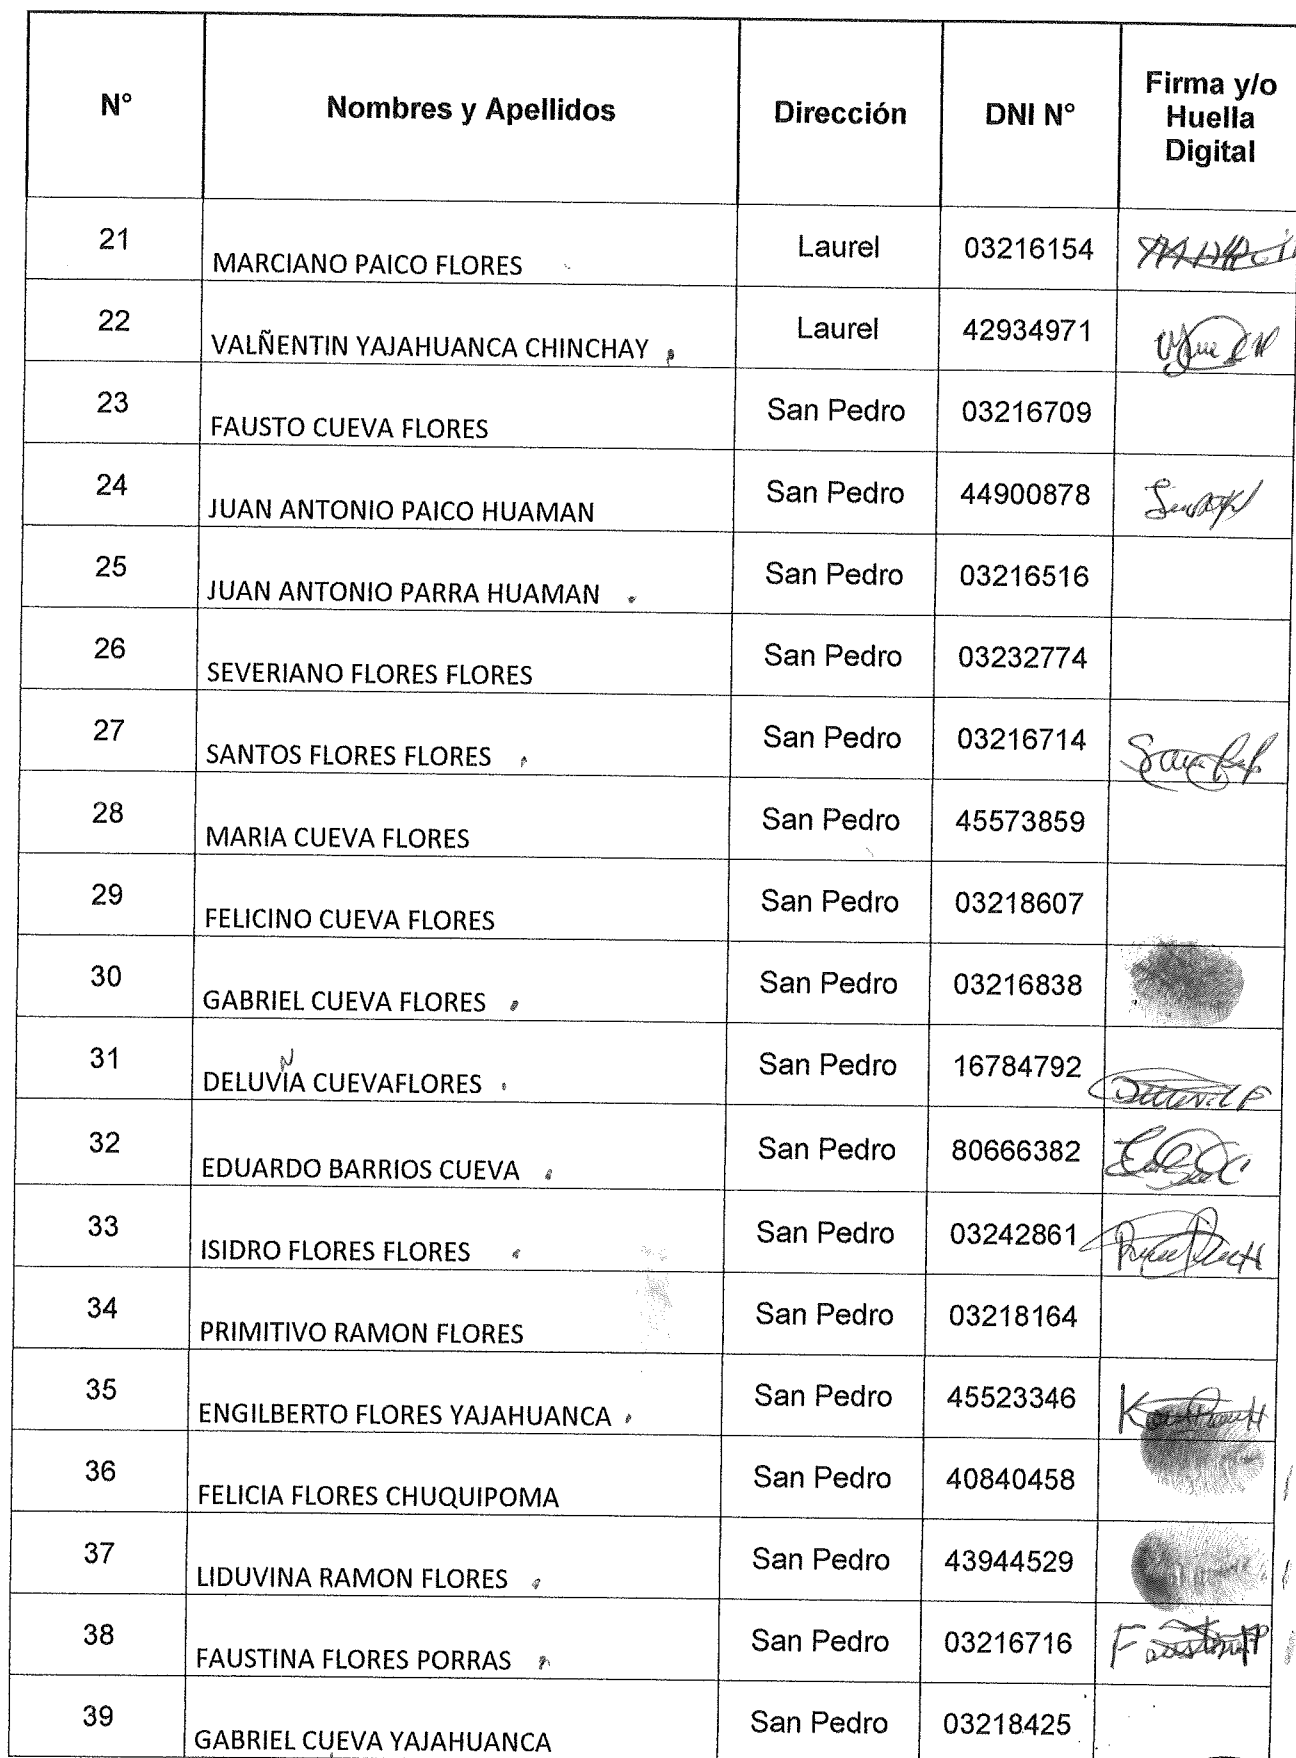 N° Nombres y Apellidos Dirección DNI N° Firma y/o Huella Digital
21 MARCIANO PAICO FLORES Laurel 03216154
22 VALÑENTIN YAJAHUANCA CHINCHAY Laurel 42934971
23 FAUSTO CUEVA FLORES San Pedro 03216709
24 JUAN ANTONIO PAICO HUAMAN San Pedro 44900878
25 JUAN ANTONIO PARRA HUAMAN San Pedro 03216516
26 SEVERIANO FLORES FLORES San Pedro 03232774
27 SANTOS FLORES FLORES San Pedro 03216714
28 MARIA CUEVA FLORES San Pedro 45573859
29 FELICINO CUEVA FLORES San Pedro 03218607
30 GABRIEL CUEVA FLORES San Pedro 03216838
N
31 DELUVIA CUEVAFLORES San Pedro 16784792
32 EDUARDO BARRIOS CUEVA San Pedro 80666382
33 ISIDRO FLORES FLORES San Pedro 03242861
34 PRIMITIVO RAMON FLORES San Pedro 03218164
35 ENGILBERTO FLORES YAJAHUANCA San Pedro 45523346
36 FELICIA FLORES CHUQUIPOMA San Pedro 40840458
37 LIDUVINA RAMON FLORES San Pedro 43944529
38 FAUSTINA FLORES PORRAS San Pedro 03216716
39 GABRIEL CUEVA YAJAHUANCA San Pedro 03218425